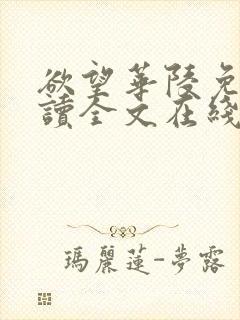 欲望華陵免
讀全文在綫
瑪麗蓮-夢露